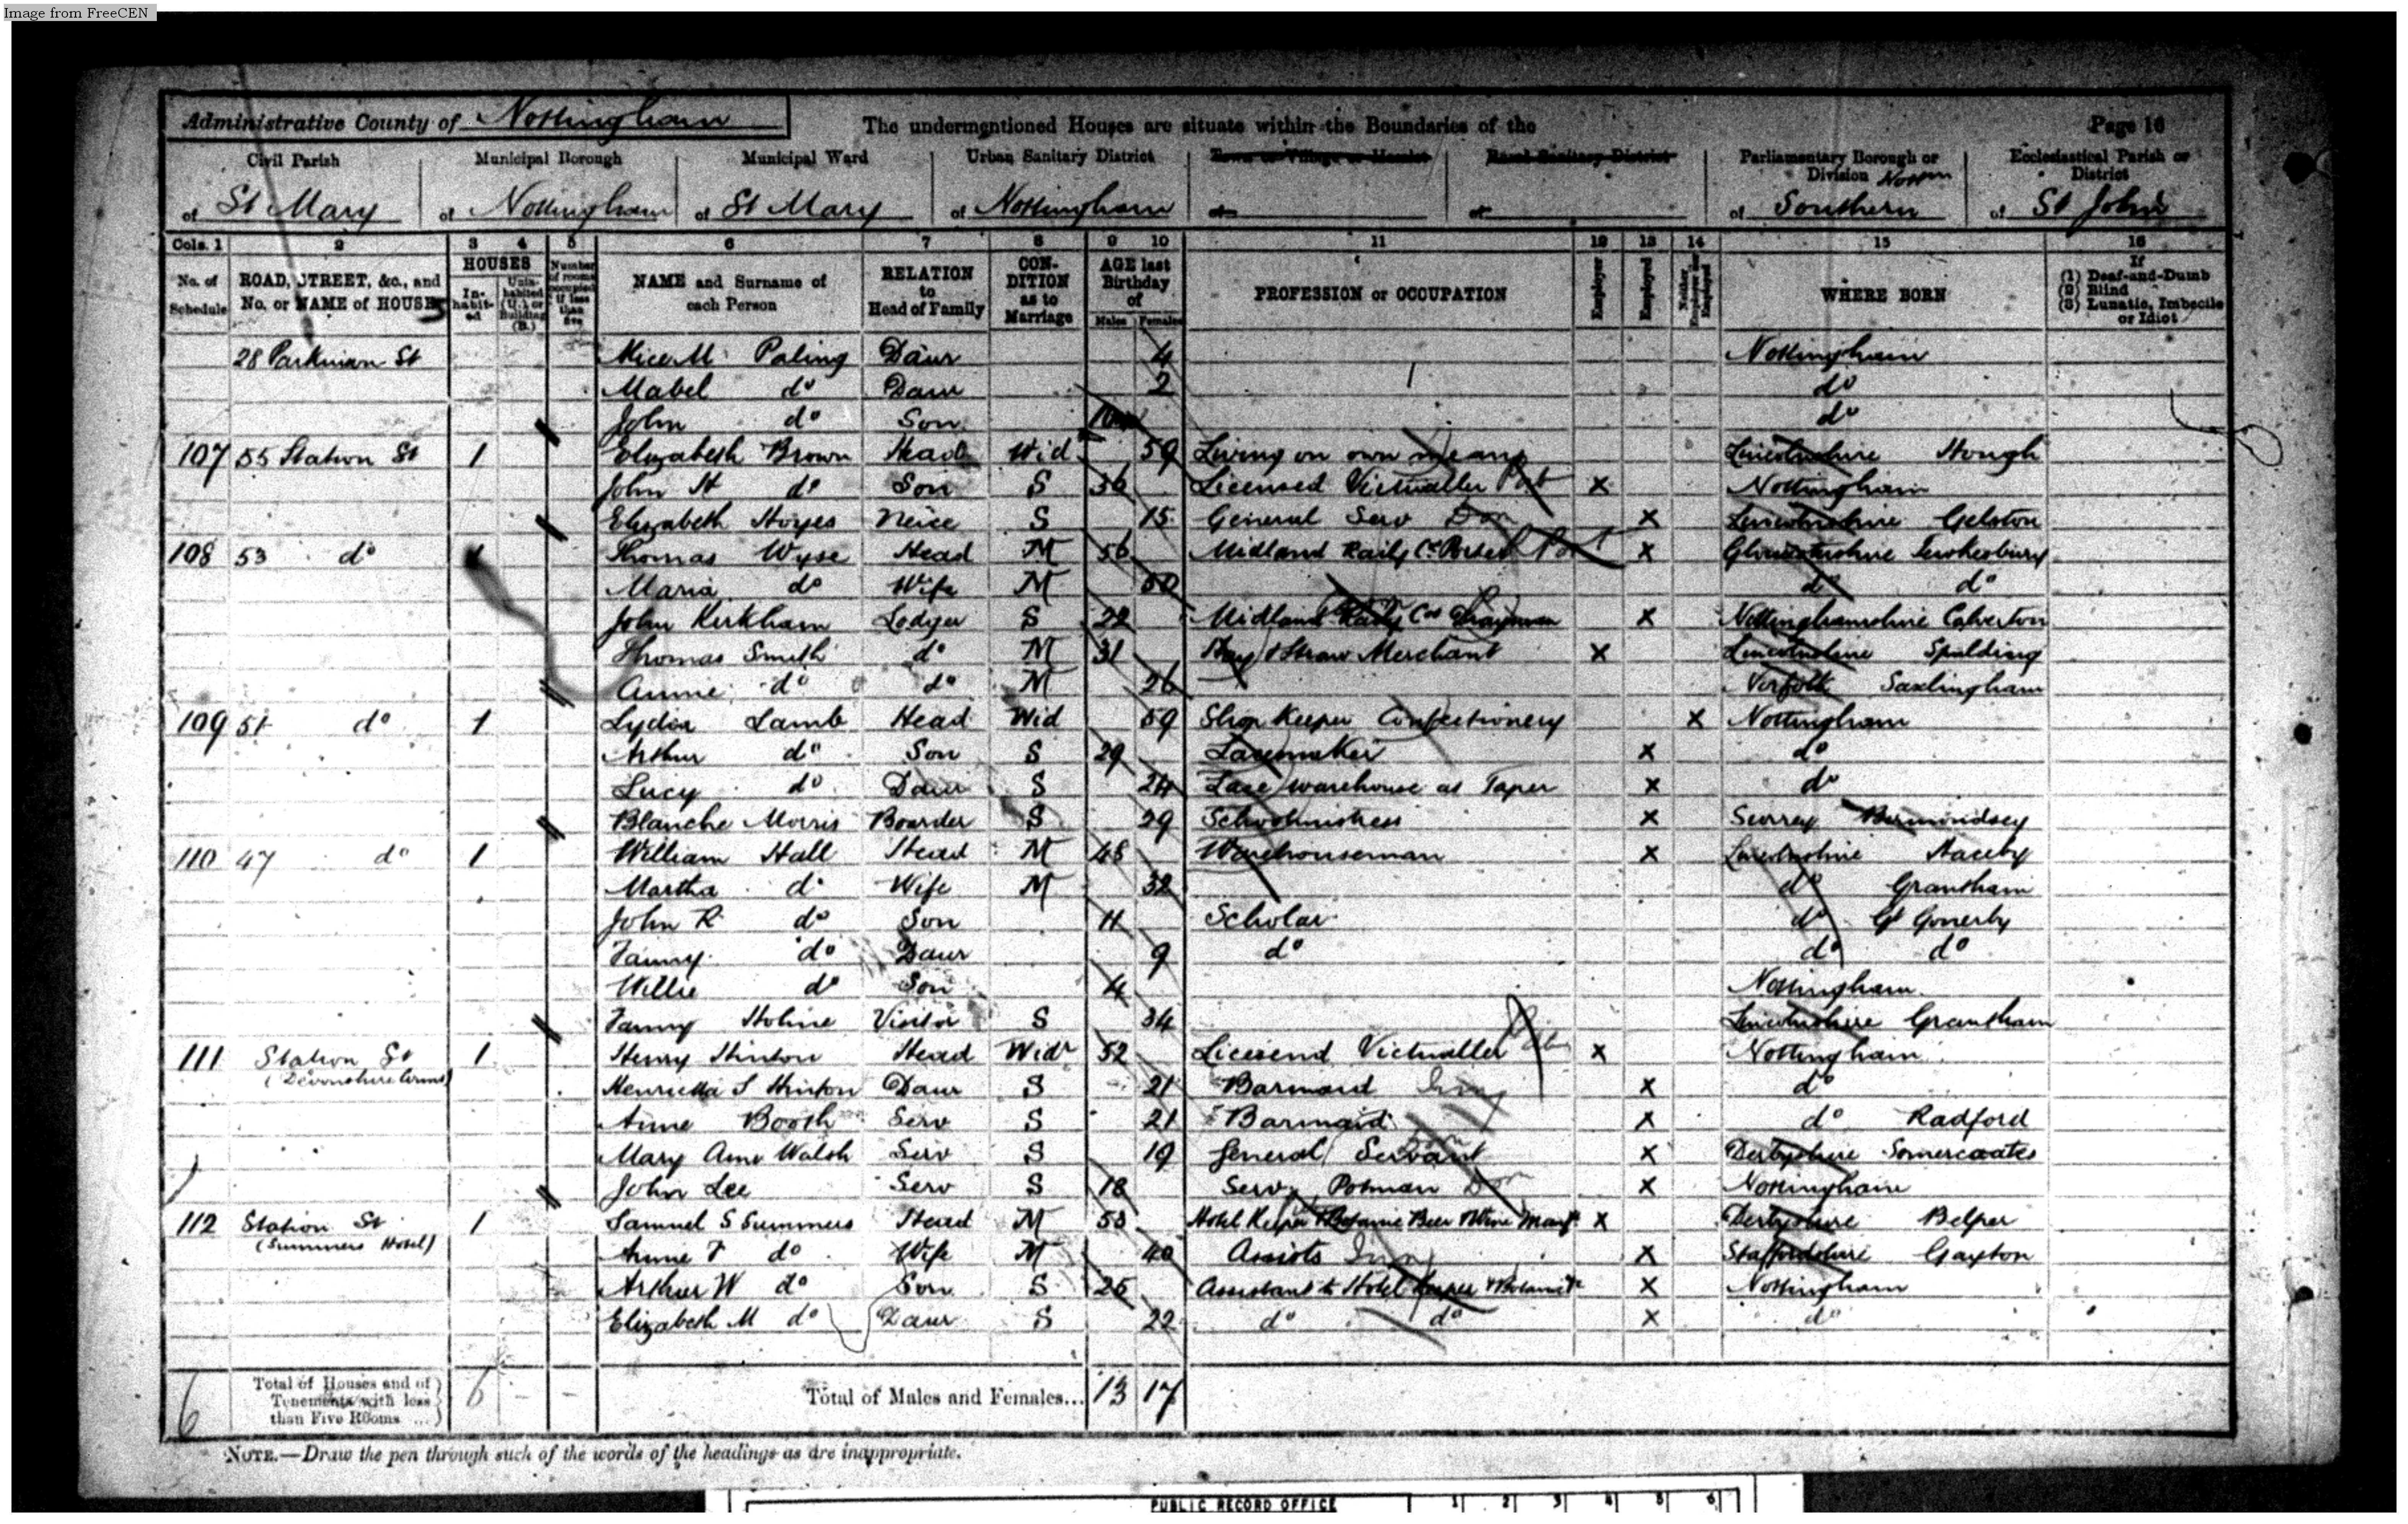 Image from FreeCEN
Administrative County of Nottingham The undermentioned Houses are situate within the Boundaries of the Page 16
Civil Parish Municipal Borough Municipal Ward Urban Sanitary District Town or Village or Hamlet Rural Sanitary District Parliamentary Borough or Division Nottm Ecclesiastical Parish or District
of St Mary of Nottingham of St Mary of Nottingham of of of Southern of St John
Cols. 1 2 3 4 5 6 7 8 9 10 11 12 13 14 15 16
No. of Schedule ROAD, STREET, &c., and No. or NAME of HOUSE HOUSES In-habit-ed Unin-habited (U.), or Building (B.) Number of rooms occupied if less than five NAME and Surname of each Person RELATION to Head of Family CON-DITION as to Marriage AGE last Birthday of Males Females PROFESSION or OCCUPATION Employer Employed Neither Employer nor Employed WHERE BORN If (1) Deaf-and-Dumb (2) Blind (3) Lunatic, Imbecile or Idiot
28 Parkinson St Alice M Paling Daur 4 Nottingham
Mabel do Daur 2 do
John do Son do
107 55 Station St 1 Elizabeth Brown Head Wid 59 Living on own means Lincolnshire Hough
John H do Son S 36 Licensed Victualler X Nottingham
Elizabeth Hoyes Neice S 15 General Serv Dom X Lincolnshire Gelston
108 53 do 1 Thomas Wyse Head M 56 Midland Raily Co Porter X Gloucestershire Tewkesbury
Maria do Wife M 50 do do
John Kirkham Lodger S 22 Midland Raily Co Drayman X Nottinghamshire Calverton
Thomas Smith do M 31 Hay & Straw Merchant X Lincolnshire Spalding
Annie do do M 26 Norfolk Saxlingham
109 51 do 1 Lydia Lamb Head Wid 59 Shop Keeper Confectionery X Nottingham
Arthur do Son S 29 Lacemaker X do
Lucy do Daur S 24 Lace warehouse as Taper X do
Blanche Morris Boarder S 29 Schoolmistress X Surrey Bermondsey
110 47 do 1 William Hall Head M 48 Warehouseman X Lincolnshire Haceby
Martha do Wife M 32 do Grantham
John R do Son 11 Scholar do Gt Gonerby
Fanny do Daur 9 do do do
Willie do Son 4 Nottingham
Fanny Holme Visitor S 34 Lincolnshire Grantham
111 Station St 1 Henry Hinton Head Widr 52 Licesend Victualler X Nottingham
(Devonshire Arms) Henrietta S Hinton Daur S 21 Barmaid Inn X do
Anne Booth Serv S 21 Barmaid X do Radford
Mary Ann Walsh Serv S 19 General Servant Dom X Derbyshire Somercoates
John Lee Serv S 18 Serv Potman Dom X Nottingham
112 Station St 1 Samuel S Summers Head M 53 Hotel Keeper & Botanic Beer & Wine Manfr X Derbyshire Belper
(Summers Hotel) Annie F do Wife M 40 Assists Inn X Staffordshire Gayton
Arthur W do Son S 25 Assistant to Hotel Keeper & Botanic X Nottingham
Elizabeth M do Daur S 22 do do X do
6 Total of Houses and of Tenements with less than Five Rooms ... 6 - - Total of Males and Females... 13 17
NOTE.—Draw the pen through such of the words of the headings as are inappropriate.
PUBLIC RECORD OFFICE 1 2 3 4 5 6